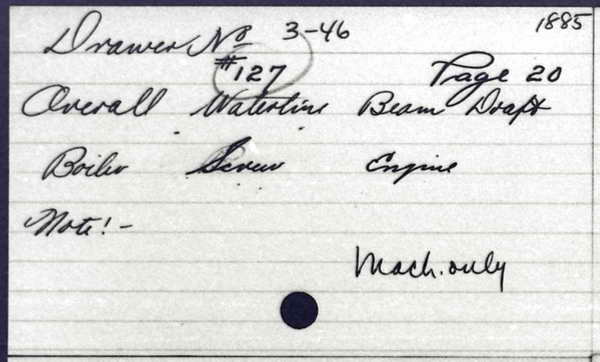 1885
Drawer No 3-46
#127 Page 20
Overall Waterline Beam Draft
Boiler Screw Engine
Note! -
Mach. only